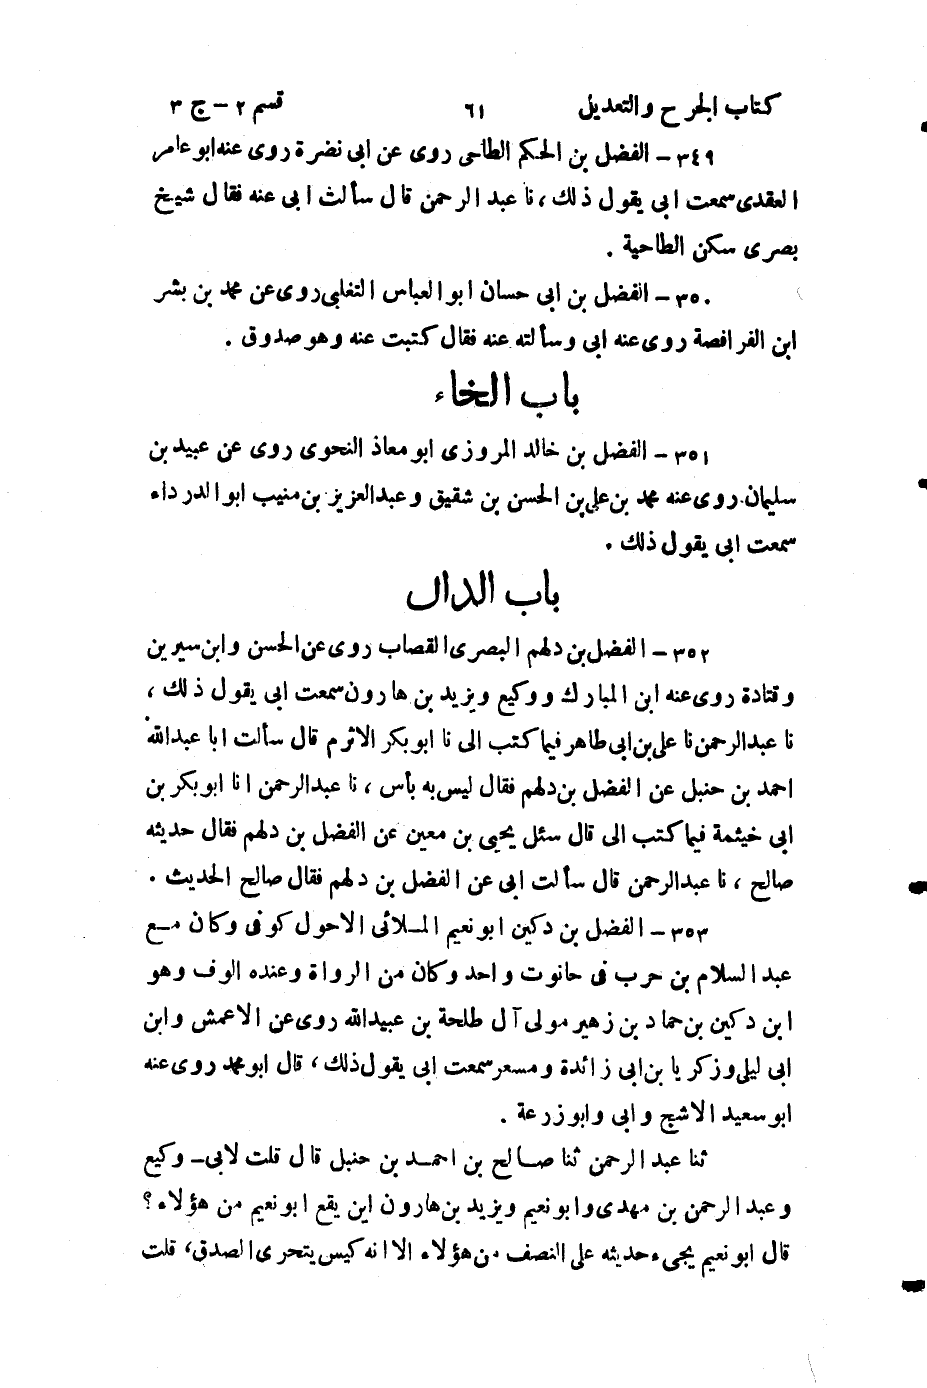 كتاب الجرح والتعديل ٦١ قسم ٢ - ج ٣
٣٤٩ - الفضل بن الحكم الطاحى روى عن ابى نضرة روى عنه ابو عامر
العقدى سمعت ابى يقول ذلك ، نا عبد الرحمن قال سألت ابى عنه فقال شيخ
بصرى سكن الطاحية .
٣٥٠ - الفضل بن ابى حسان ابو العباس التغلبى روى عن محمد بن بشر
ابن الفرافصة روى عنه ابى وسألته عنه فقال كتبت عنه وهو صدوق .
باب الخاء
٣٥١ - الفضل بن خالد المروزى ابو معاذ النحوى روى عن عبيد بن
سليمان روى عنه محمد بن على بن الحسن بن شقيق وعبد العزيز بن منيب ابو الدرداء
سمعت ابى يقول ذلك .
باب الدال
٣٥٢ - الفضل بن دلهم البصرى القصاب روى عن الحسن وابن سيرين
وقتادة روى عنه ابن المبارك ووكيع ويزيد بن هارون سمعت ابى يقول ذلك ،
نا عبد الرحمن نا على بن ابى طاهر فيما كتب الى نا ابو بكر الاثرم قال سألت ابا عبد الله
احمد بن حنبل عن الفضل بن دلهم فقال ليس به بأس ، نا عبد الرحمن انا ابو بكر بن
ابى خيثمة فيما كتب الى قال سئل يحيى بن معين عن الفضل بن دلهم فقال حديثه
صالح ، نا عبد الرحمن قال سألت ابى عن الفضل بن دلهم فقال صالح الحديث .
٣٥٣ - الفضل بن دكين ابو نعيم الملائى الاحول كوفى وكان مع
عبد السلام بن حرب فى حانوت واحد وكان من الرواة وعنده الوف وهو
ابن دكين بن حماد بن زهير مولى آل طلحة بن عبيد الله روى عن الاعمش وابن
ابى ليلى وزكريا بن ابى زائدة ومسعر سمعت ابى يقول ذلك ، قال ابو محمد روى عنه
ابو سعيد الاشج وابى وابو زرعة .
ثنا عبد الرحمن ثنا صالح بن احمد بن حنبل قال قلت لابى - وكيع
وعبد الرحمن بن مهدى وابو نعيم ويزيد بن هارون اين يقع ابو نعيم من هؤلاء ؟
قال ابو نعيم يجىء حديثه على النصف من هؤلاء الا انه كيس يتحرى الصدق ، قلت